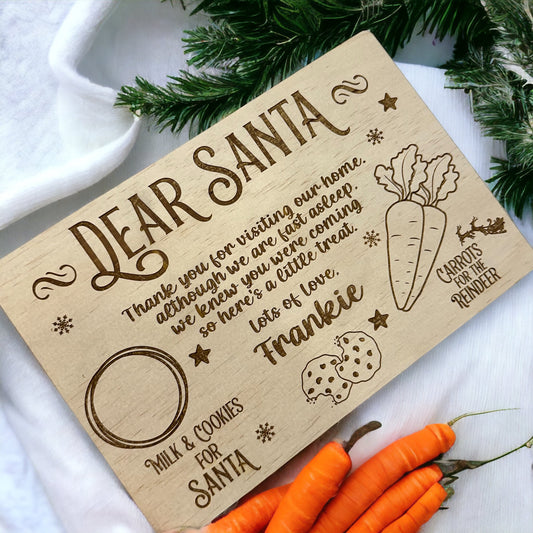 DEAR SANTA
Thank you for visiting our home,
although we are fast asleep,
we knew you were coming
so here's a little treat.
Lots of love,
Frankie
CARROTS
FOR THE
REINDEER
MILK & COOKIES
FOR
SANTA